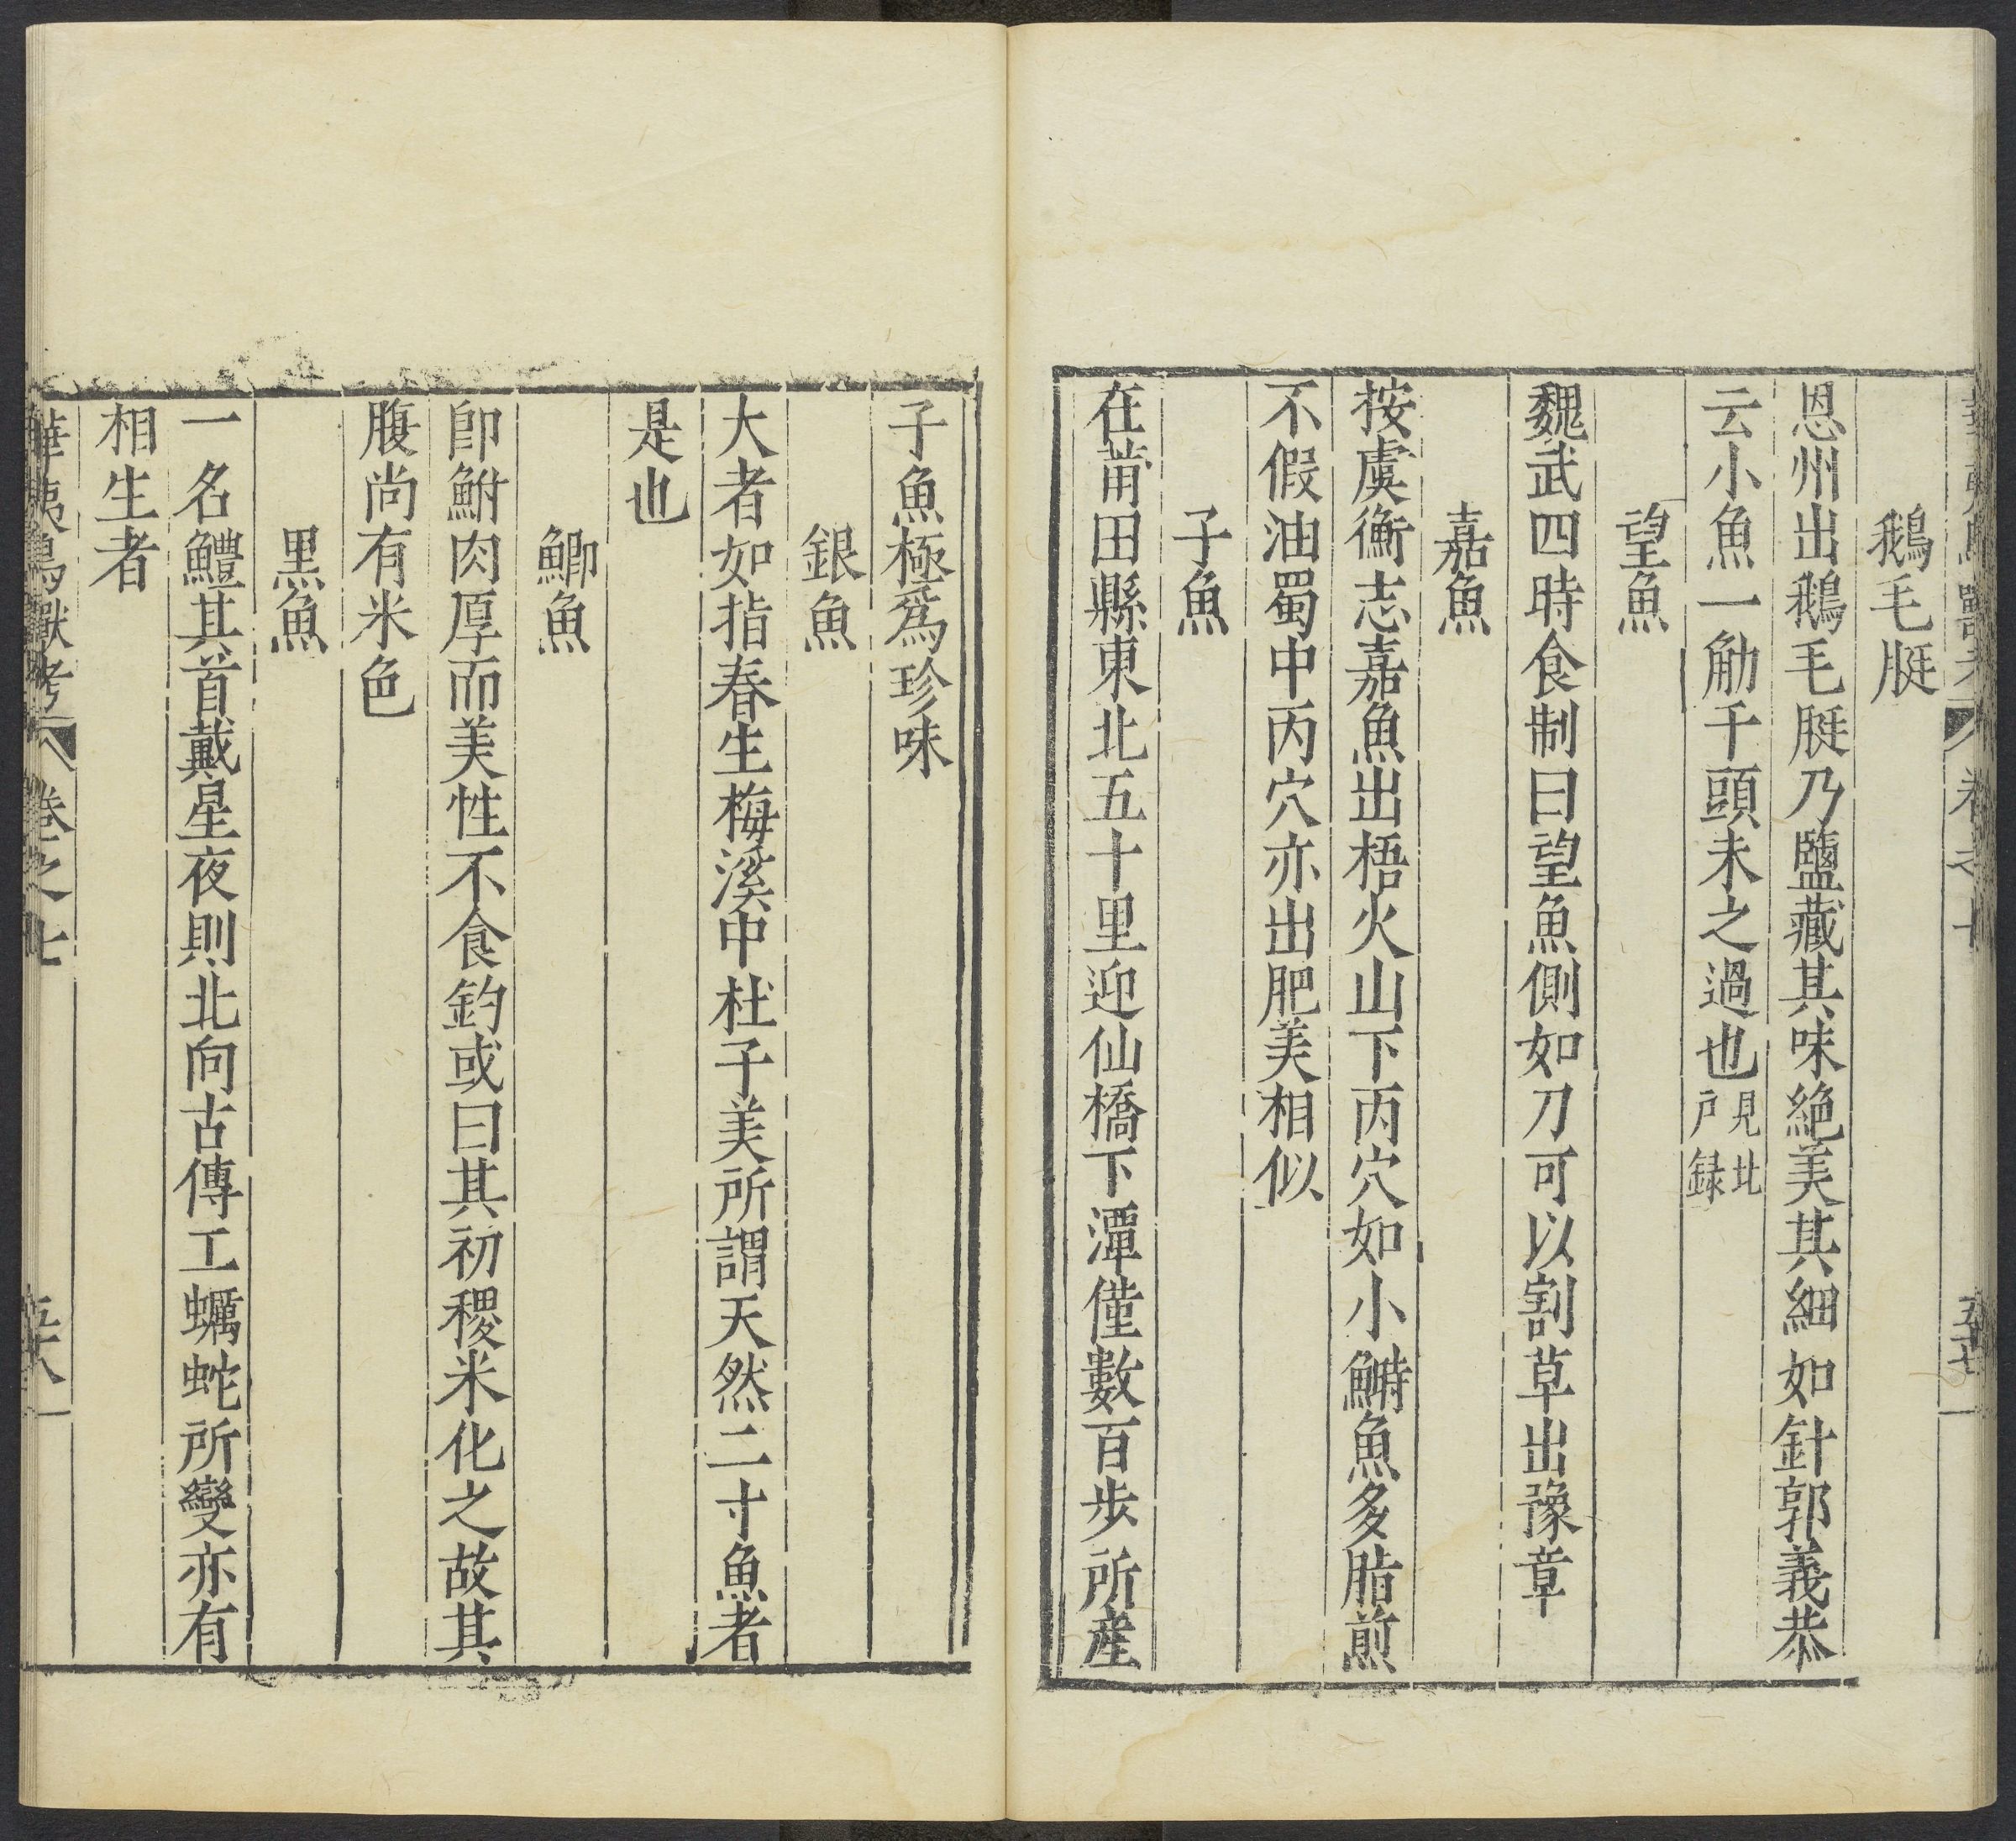 鵝毛脡
恩州出鵝毛脡乃鹽藏其味絶美其細如針郭義恭
云小魚一觔千頭未之過也見北戸録
望魚
魏武四時食制曰望魚側如刀可以割草出豫章
嘉魚
按虞衡志嘉魚出梧火山下丙穴如小鰣魚多脂煎
不假油蜀中丙穴亦出肥美相似
子魚
在莆田縣東北五十里迎仙橋下潭僅數百步所産
子魚極爲珍味
銀魚
大者如指春生梅溪中杜子美所謂天然二寸魚者
是也
鯽魚
卽鮒肉厚而美性不食釣或曰其初稷米化之故其
腹尚有米色
黒魚
一名鱧其首戴星夜則北向古傳工蠣蛇所變亦有
相生者
華夷鳥獸考 卷之七 五十八